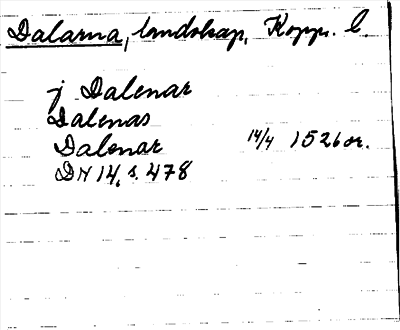 Dalarna, landskap, Kopp. l.
j Dalenar
Dalenas
Dalenar 14/4 1526 or.
DN 14, s. 478